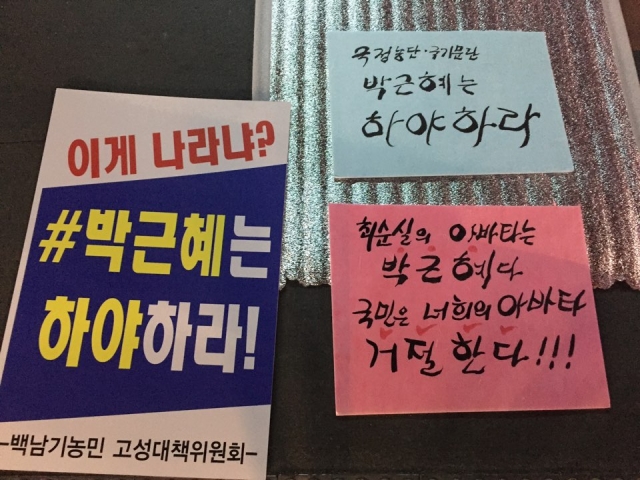 이게 나라냐?
#박근혜는
하야하라!
-백남기농민 고성대책위원회-
국정농단·국기문란
박근혜는
하야하라
최순실의 아바타는
박근혜다
국민은 너희의 아바타
거절한다!!!